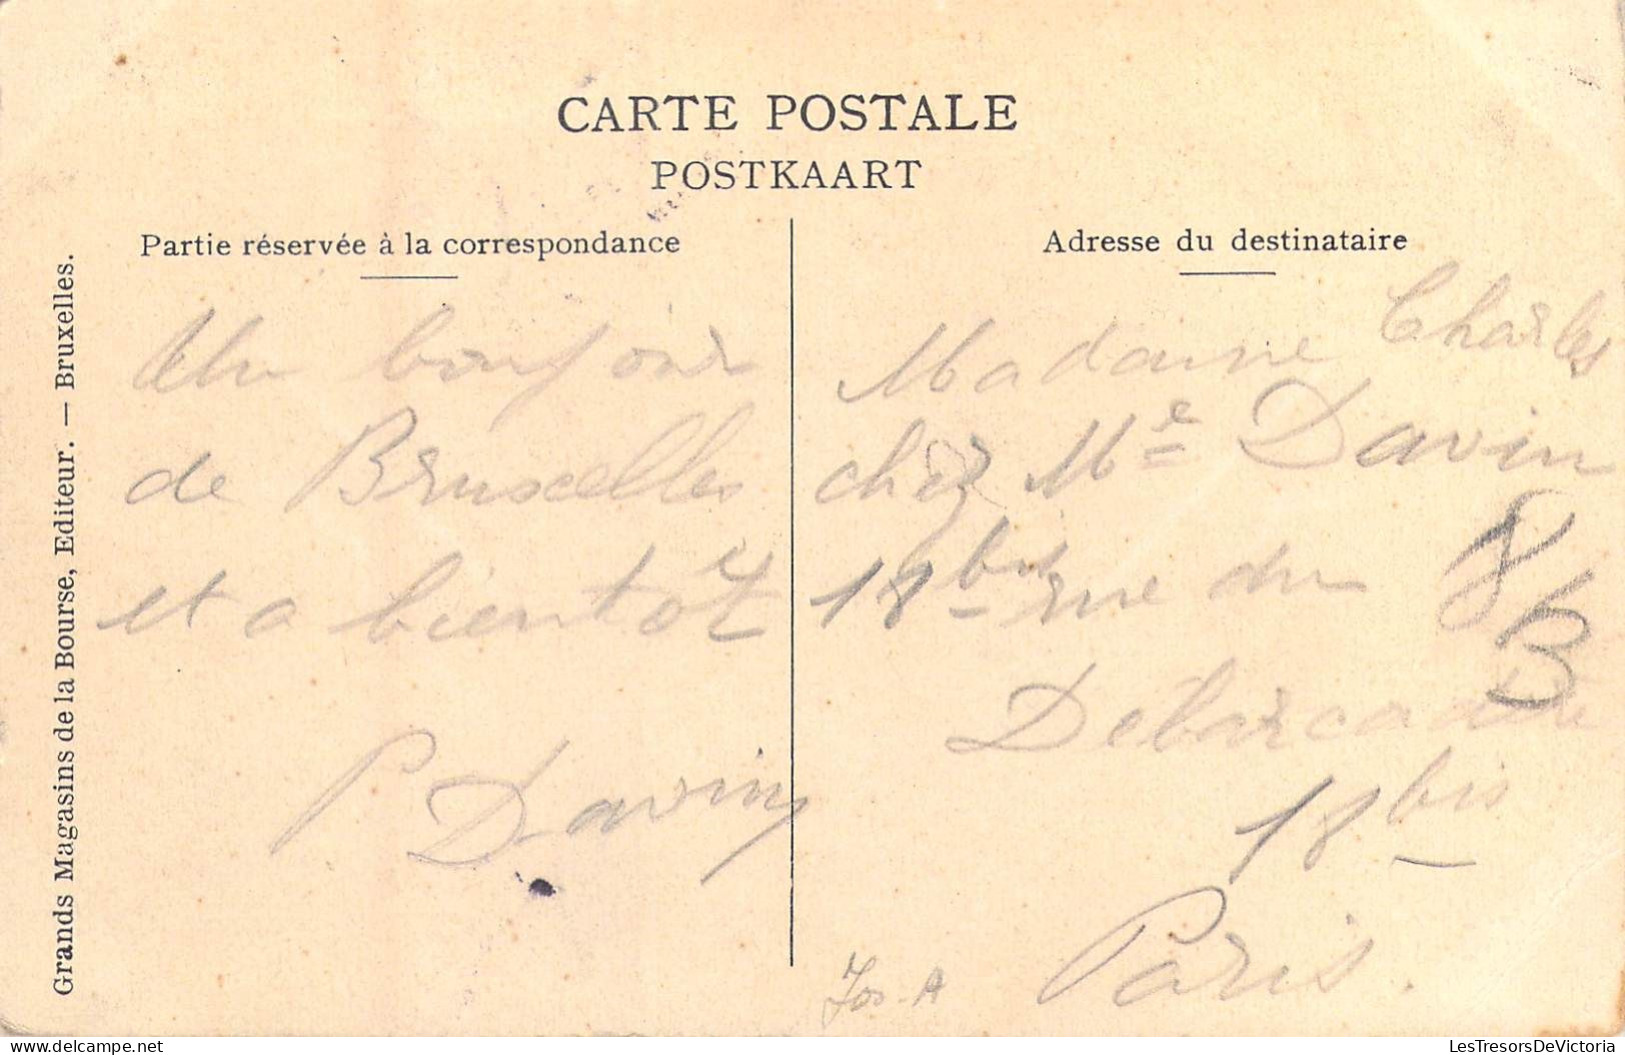 CARTE POSTALE
POSTKAART
Partie réservée à la correspondance
Un bonjour
de Bruxelles
et a bientot
P Davin
Adresse du destinataire
Madame Charles
chez Me Davin
18 bis rue du
Debarcadere
18 bis
Paris.
8
B
Grands Magasins de la Bourse, Editeur. — Bruxelles.
delcampe.net
LesTresorsDeVictoria